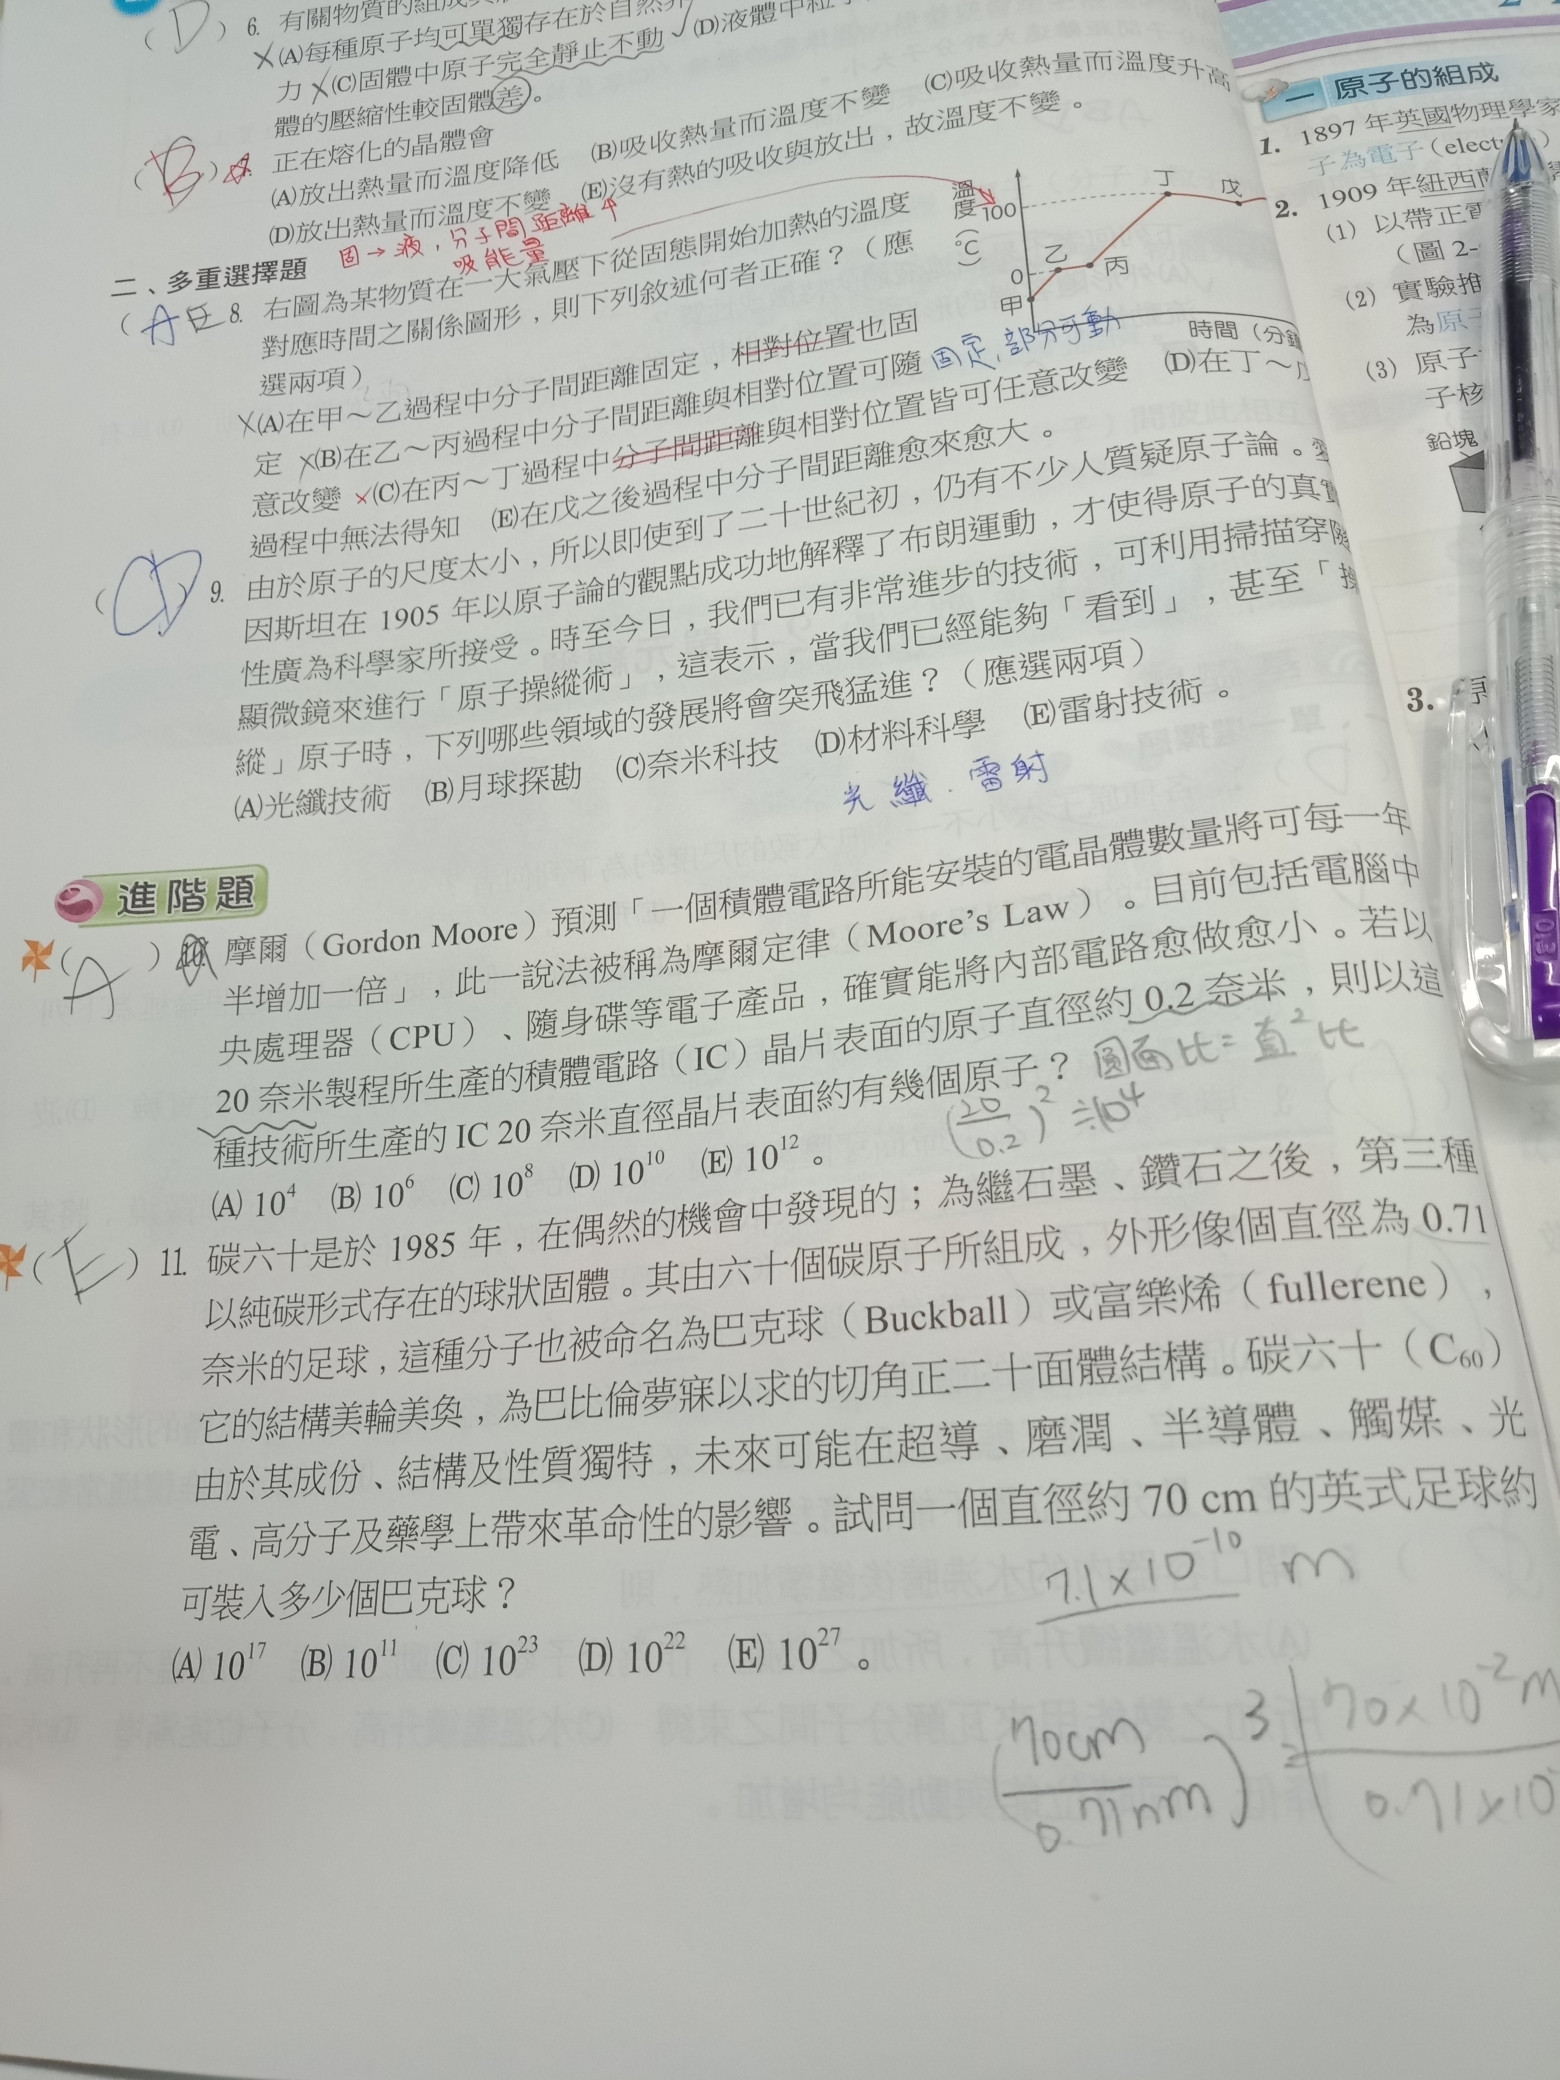 (D) 6. 有關物質的組成
(A)每種原子均可單獨存在於自然界
力 (C)固體中原子完全靜止不動 (D)液體中粒子
體的壓縮性較固體差。
(B) 7. 正在熔化的晶體會
(A)放出熱量而溫度降低 (B)吸收熱量而溫度不變 (C)吸收熱量而溫度升高
(D)放出熱量而溫度不變 (E)沒有熱的吸收與放出，故溫度不變。
固→液，分子間距離↑
吸能量
二、多重選擇題
(AE) 8. 右圖為某物質在一大氣壓下從固態開始加熱的溫度
對應時間之關係圖形，則下列敘述何者正確？（應
選兩項）
(A)在甲～乙過程中分子間距離固定，相對位置也固
定 (B)在乙～丙過程中分子間距離與相對位置可隨
固定、部分可動
意改變 (C)在丙～丁過程中分子間距離與相對位置皆可任意改變 (D)在丁～戊
過程中無法得知 (E)在戊之後過程中分子間距離愈來愈大。
溫度(℃)
100
0
甲
乙
丙
丁
戊
時間（分鐘
9. 由於原子的尺度太小，所以即使到了二十世紀初，仍有不少人質疑原子論。愛
因斯坦在 1905 年以原子論的觀點成功地解釋了布朗運動，才使得原子的真實
性廣為科學家所接受。時至今日，我們已有非常進步的技術，可利用掃描穿隧
顯微鏡來進行「原子操縱術」，這表示，當我們已經能夠「看到」，甚至「操
縱」原子時，下列哪些領域的發展將會突飛猛進？（應選兩項）
(A)光纖技術 (B)月球探勘 (C)奈米科技 (D)材料科學 (E)雷射技術。
光纖．雷射
進階題
(A) 10. 摩爾（Gordon Moore）預測「一個積體電路所能安裝的電晶體數量將可每一年
半增加一倍」，此一說法被稱為摩爾定律（Moore's Law）。目前包括電腦中
央處理器（CPU）、隨身碟等電子產品，確實能將內部電路愈做愈小。若以
20 奈米製程所生產的積體電路（IC）晶片表面的原子直徑約 0.2 奈米，則以這
種技術所生產的 IC 20 奈米直徑晶片表面約有幾個原子？
圓面比=直²比
(20/0.2)²≒10⁴
(A) 10⁴ (B) 10⁶ (C) 10⁸ (D) 10¹⁰ (E) 10¹²。
(E) 11. 碳六十是於 1985 年，在偶然的機會中發現的；為繼石墨、鑽石之後，第三種
以純碳形式存在的球狀固體。其由六十個碳原子所組成，外形像個直徑為 0.71
奈米的足球，這種分子也被命名為巴克球（Buckball）或富樂烯（fullerene），
它的結構美輪美奐，為巴比倫夢寐以求的切角正二十面體結構。碳六十（C₆₀）
由於其成份、結構及性質獨特，未來可能在超導、磨潤、半導體、觸媒、光
電、高分子及藥學上帶來革命性的影響。試問一個直徑約 70 cm 的英式足球約
可裝入多少個巴克球？
7.1×10⁻¹⁰ m
(A) 10¹⁷ (B) 10¹¹ (C) 10²³ (D) 10²² (E) 10²⁷。
(70cm/0.71nm)³=(70×10⁻²m/0.71×10
一 原子的組成
1. 1897 年英國物理學家
子為電子（elect
2. 1909 年紐西蘭
(1) 以帶正電
（圖 2-
(2) 實驗推
為原子
(3) 原子
子核
鉛塊
3.